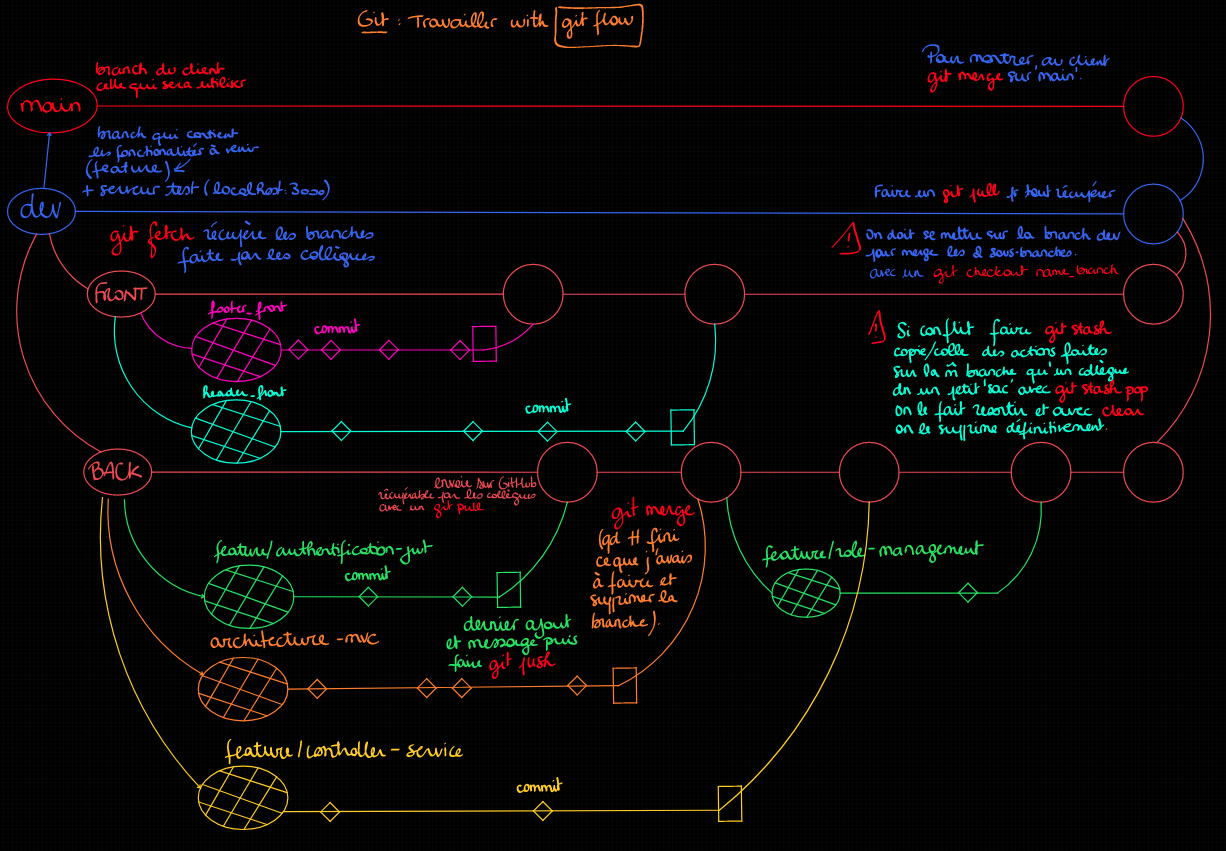 Git : Travailler with git flow
branch du client
celle qui sera utiliser
main
Pour montrer, au client
git merge sur main.
branch qui contient
les fonctionalités à venir
(feature)
+ serveur test (localhost:3000)
dev
Faire un git pull pr tout récupérer
git fetch récupère les branches
faite par les collègues
! On doit se mettre sur la branch dev
pour merge les 2 sous-branches.
avec un git checkout name_branch
FRONT
footer_front
commit
! Si conflit faire git stash
copie/colle des actions faites
sur la m̂ branche qu'un collègue
dn un petit 'sac' avec git stash pop
on le fait ressortir et avec clear
on le supprime définitivement.
header_front
commit
BACK
envoie sur GitHub
récupérable par les collègues
avec un git pull
git merge
(qd tt fini
ce que j'avais
à faire et
supprimer la
branche).
feature/authentification-jwt
commit
feature/role-management
dernier ajout
et message puis
faire git push
architecture-mvc
feature/controller-service
commit